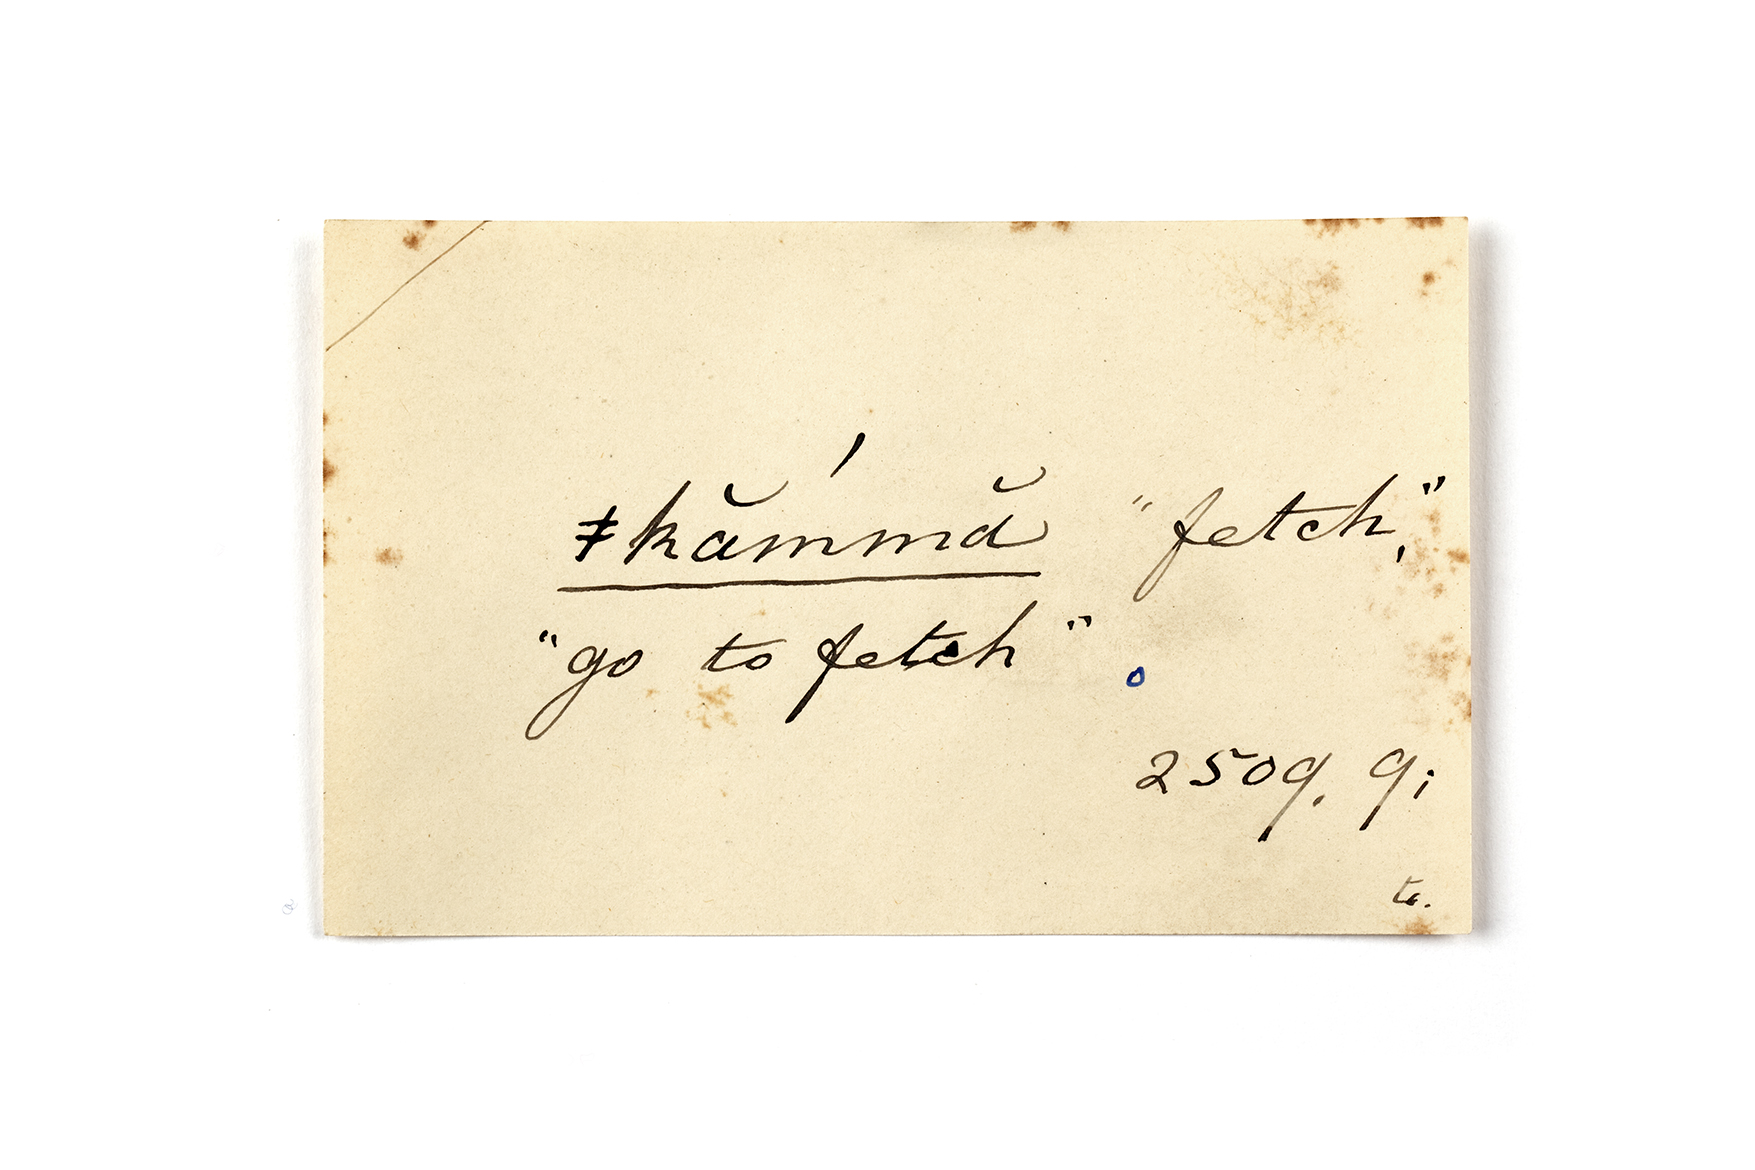 ǂkắmmă "fetch,"
"go to fetch"
2509. 9;
tr.